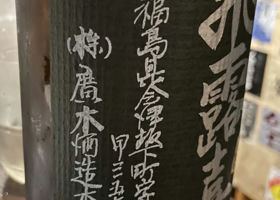 飛露喜
福島県会津坂下町字
甲三五
(株)廣木酒造本